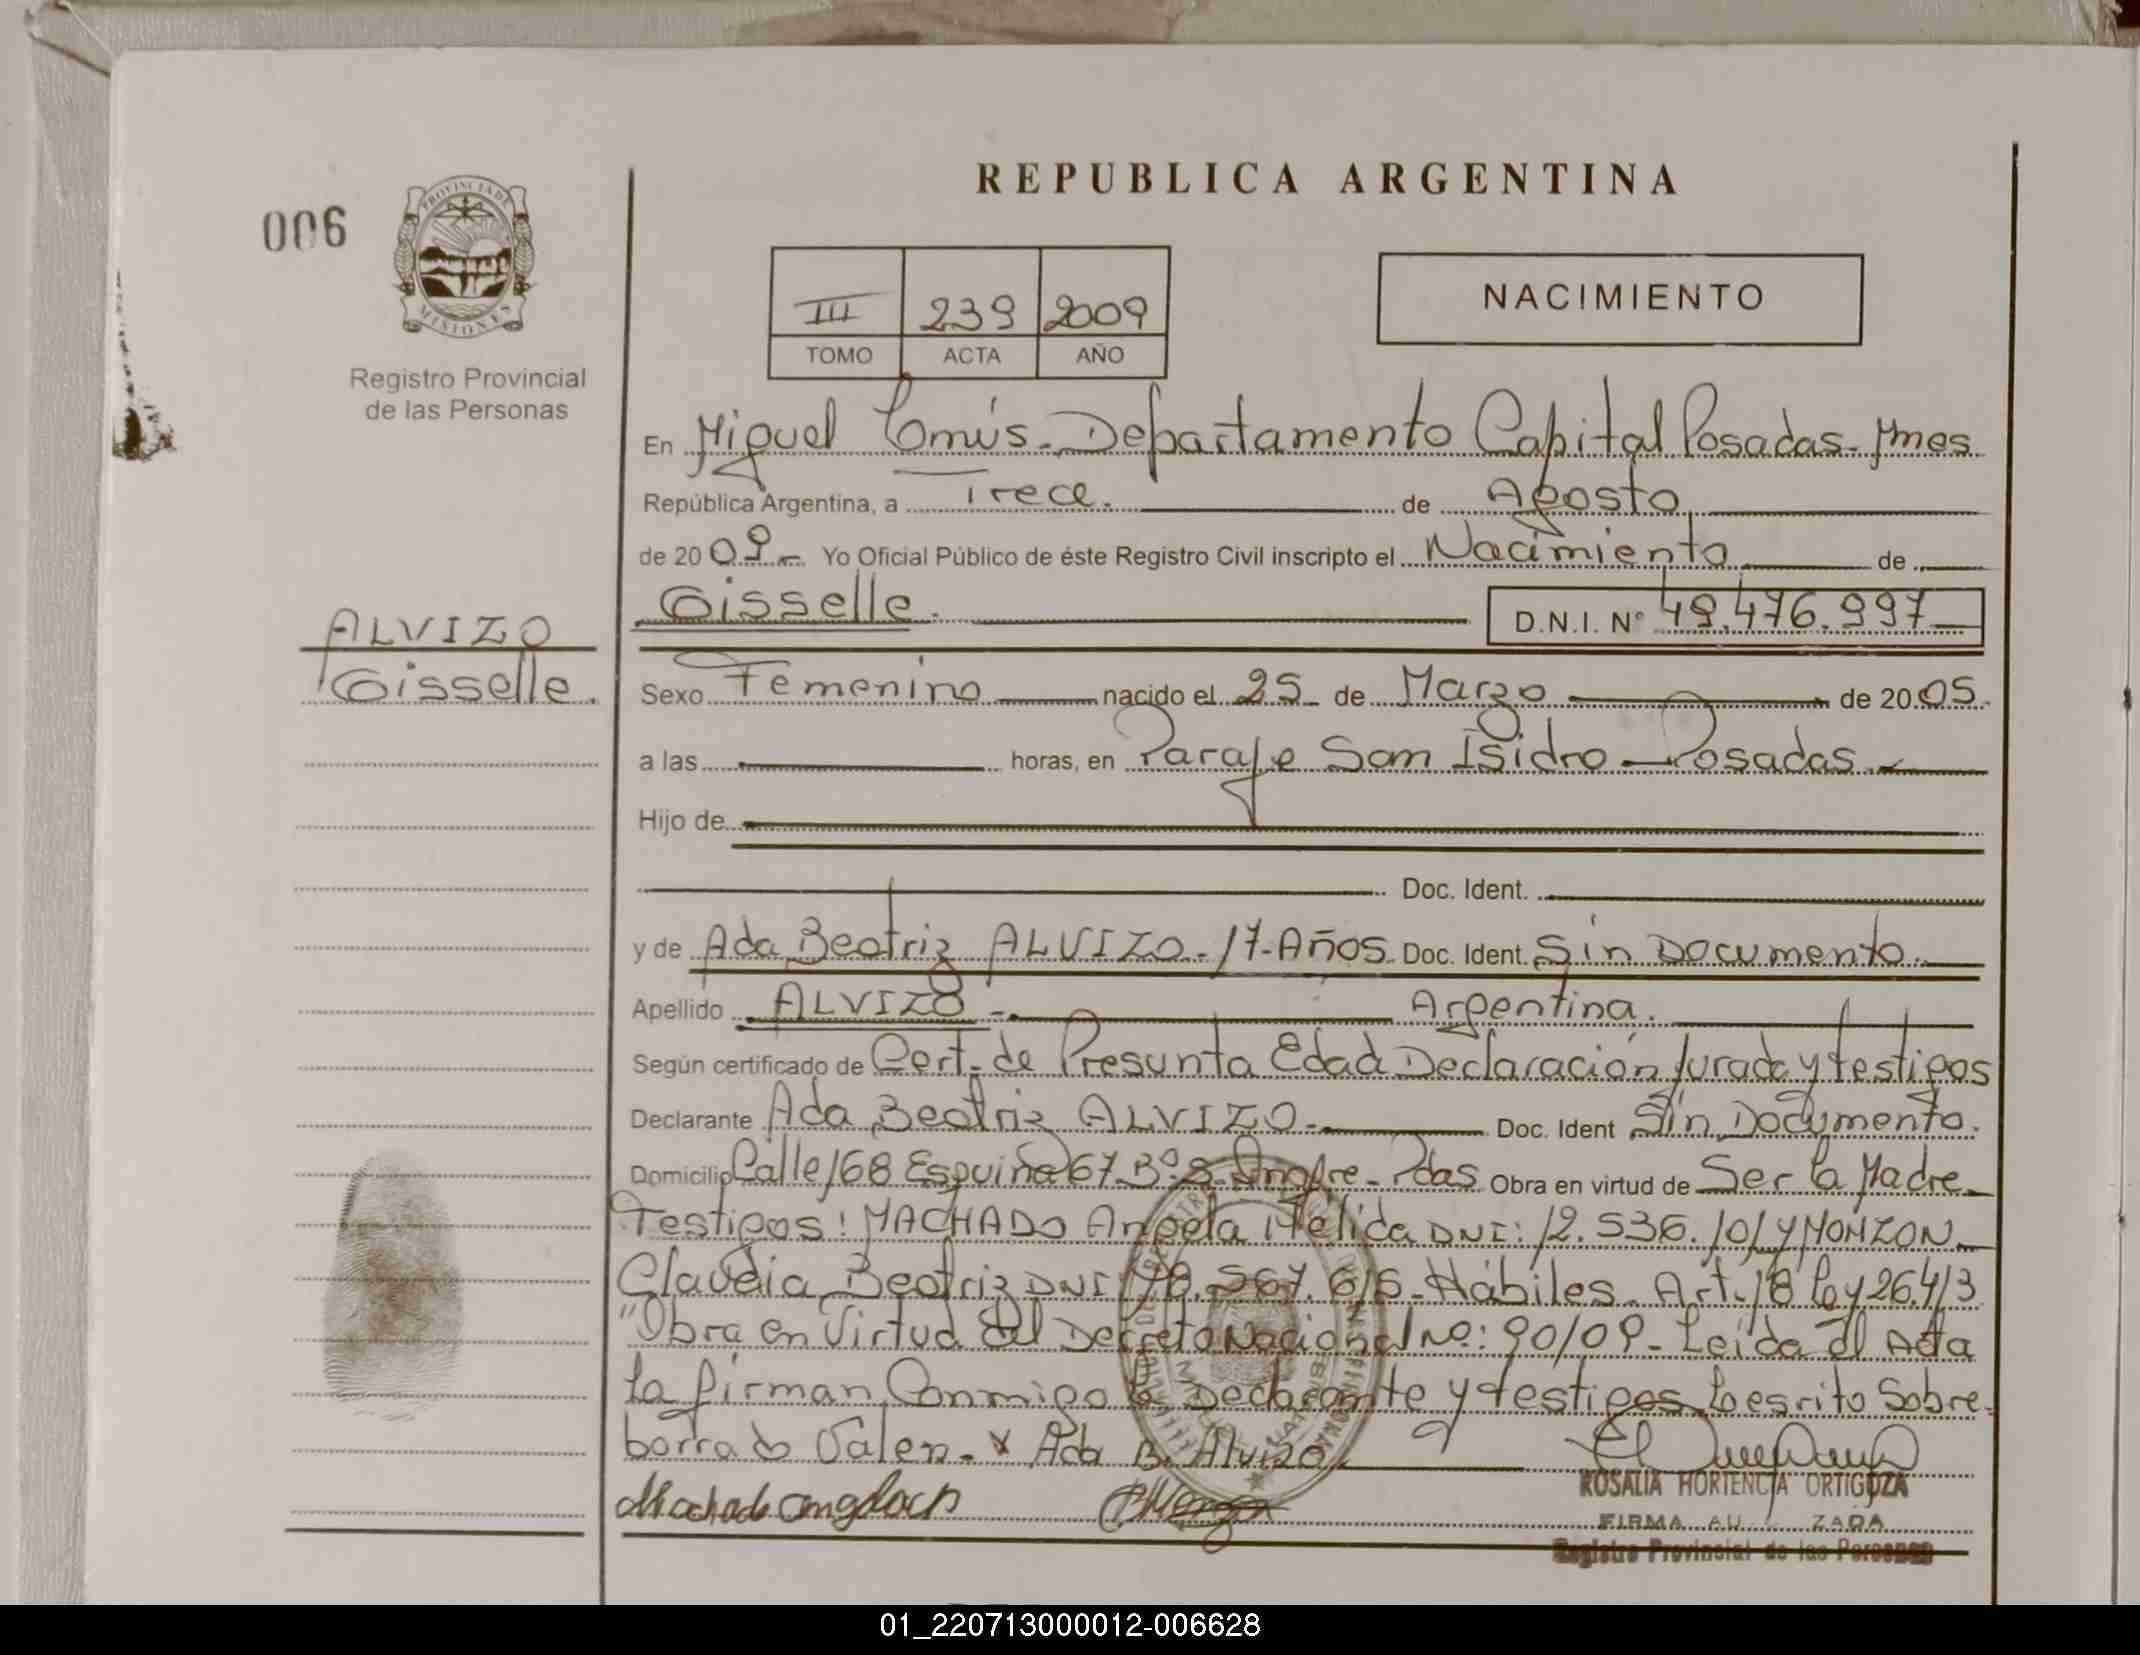 REPUBLICA ARGENTINA
006
PROVINCIA DE
MISIONES
Registro Provincial
de las Personas
III 239 2009
TOMO ACTA AÑO
NACIMIENTO
En Miguel Lanús - Departamento Capital Posadas - Mnes
República Argentina, a Trece. de Agosto
de 2009 - Yo Oficial Público de éste Registro Civil inscripto el Nacimiento de
Gisselle. D.N.I. Nº 49.476.997
ALVIZO
Gisselle.
Sexo Femenino nacido el 25 de Marzo de 2005.
a las horas, en Paraje San Isidro - Posadas. -
Hijo de
Doc. Ident.
y de Ada Beatriz ALVIZO - 17 - Años. Doc. Ident. Sin Documento.
Apellido ALVIZO - Argentina.
Según certificado de Cert. de Presunta Edad Declaración Jurada y testigos
Declarante Ada Beatriz ALVIZO - Doc. Ident Sin Documento.
Domicilio Calle 168 Esquina 67 Bº S. Onofre - Pdas Obra en virtud de Ser la Madre -
Testigos: MACHADO Angela Nelida DNI: 12.536.101 y MONZON -
Claudia Beatriz DNI 18.567.615 - Hábiles - Art. 18 Ley 26.413
"Obra en Virtud del Decreto Nacional Nº: 90/09 - Leída el Acta
la firman Conmigo la Declarante y testigos. Lo esrito Sobre-
borrado Valen - x Ada B. Alvizo
ROSALIA HORTENCIA ORTIGOZA
FIRMA AU ZADA
Registro Provincial de las Personas
01_220713000012-006628